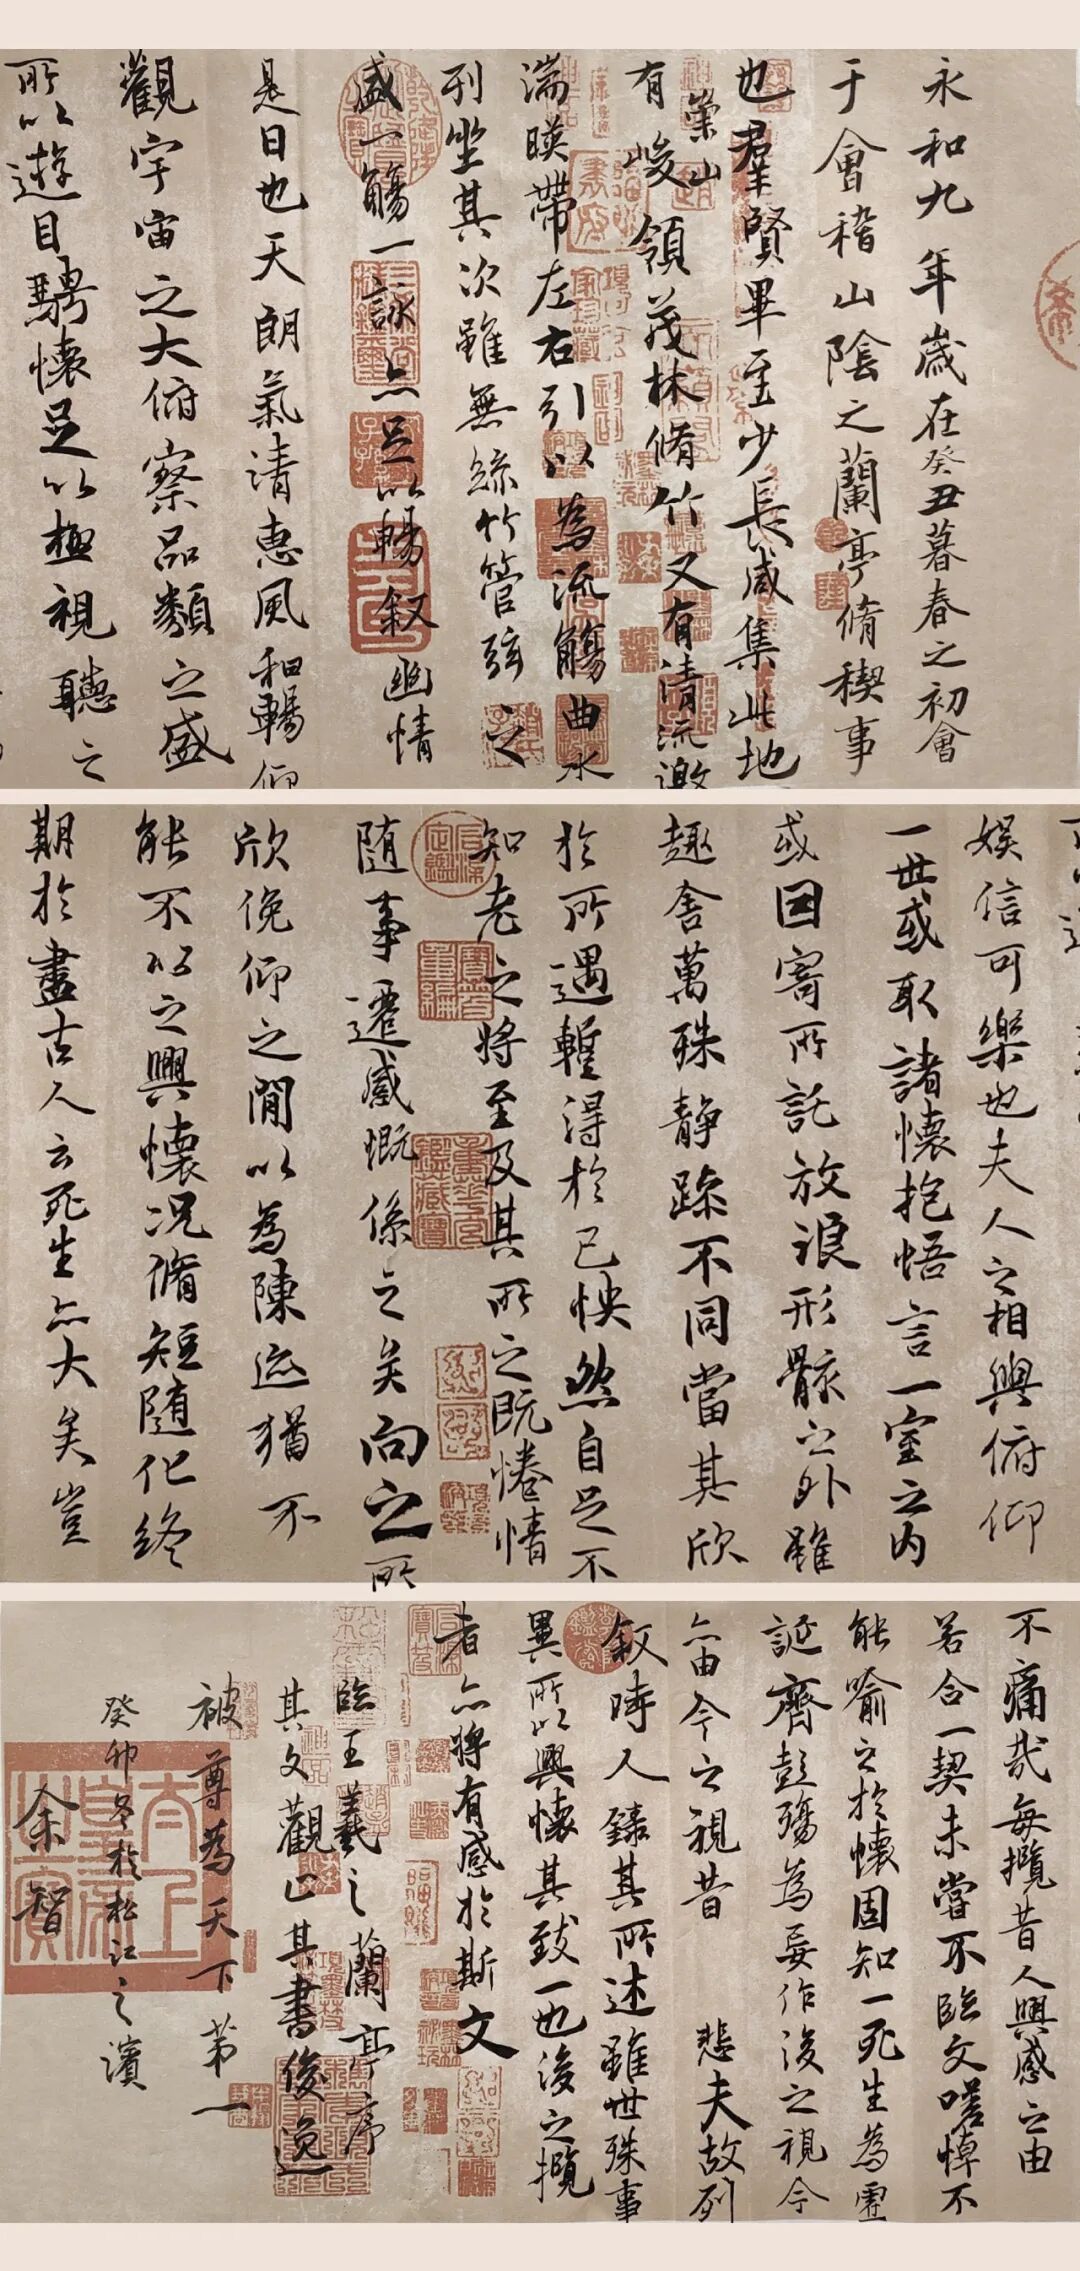 永和九年歲在癸丑暮春之初會
于會稽山陰之蘭亭脩稧事
也羣賢畢至少長咸集此地
有崇山峻領茂林脩竹又有清流激
湍暎帶左右引以為流觴曲水
列坐其次雖無絲竹管弦之
盛一觴一詠亦足以暢敘幽情
是日也天朗氣清惠風和暢仰
觀宇宙之大俯察品類之盛
所以遊目騁懷足以極視聽之
娛信可樂也夫人之相與俯仰
一世或取諸懷抱悟言一室之內
或因寄所託放浪形骸之外雖
趣舍萬殊靜躁不同當其欣
於所遇蹔得於己怏然自足不
知老之將至及其所之既惓情
隨事遷感慨係之矣向之所
欣俛仰之閒以為陳迹猶不
能不以之興懷況脩短隨化終
期於盡古人云死生亦大矣豈
不痛哉每攬昔人興感之由
若合一契未嘗不臨文嗟悼不
能喻之於懷固知一死生為虛
誕齊彭殤為妄作後之視今
亦由今之視昔 悲夫故列
敘時人錄其所述雖世殊事
異所以興懷其致一也後之攬
者亦將有感於斯文
臨王羲之蘭亭序
其文觀止其書俊逸
被尊為天下第一
癸卯冬於松江之濱
余智
太上皇帝之寶